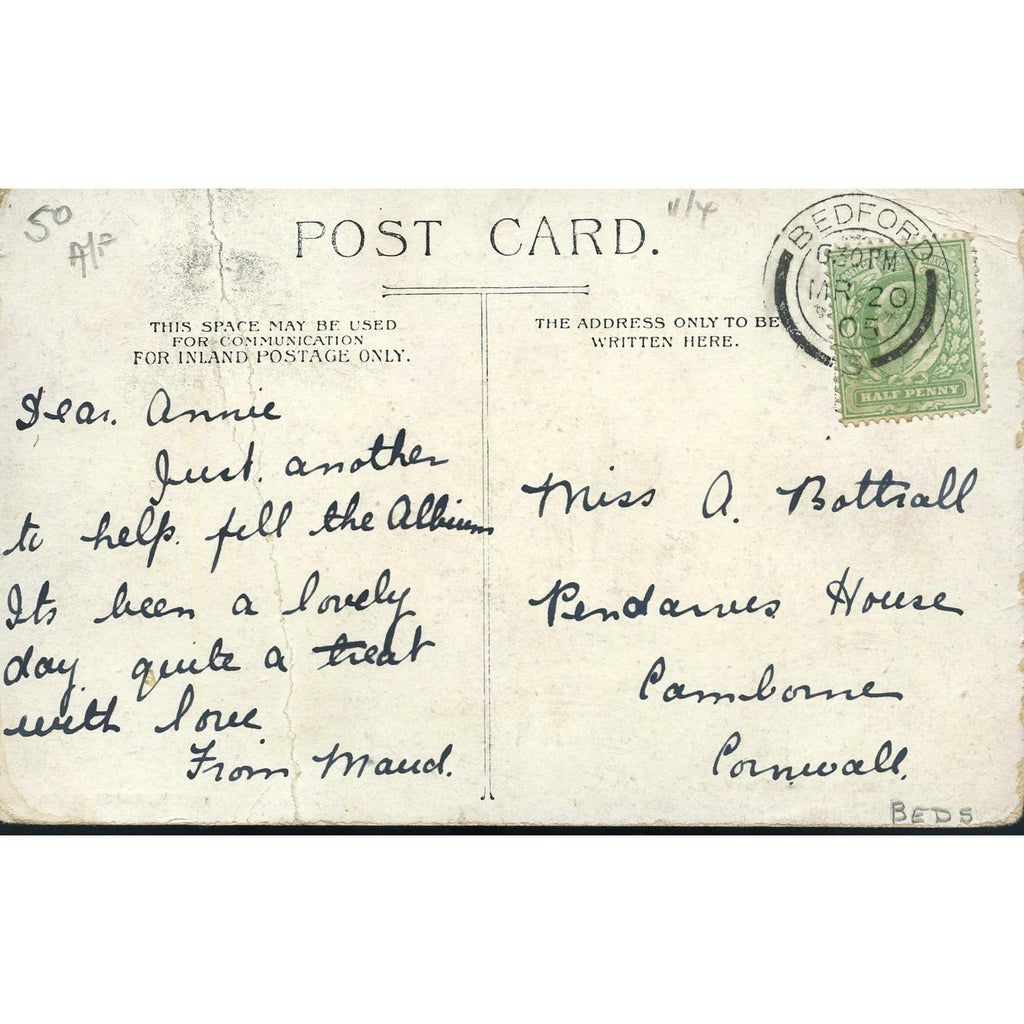 50
A/F
11/4
POST CARD.
THIS SPACE MAY BE USED
FOR COMMUNICATION
FOR INLAND POSTAGE ONLY.
THE ADDRESS ONLY TO BE
WRITTEN HERE.
BEDFORD
630PM
MR 20
05
3
HALF PENNY
Dear. Annie
Just. another
to help. fill the Album
Its been a lovely
day quite a treat
with love
From Maud.
Miss A. Bottrall
Pendarves House
Camborne
Cornwall.
BEDS